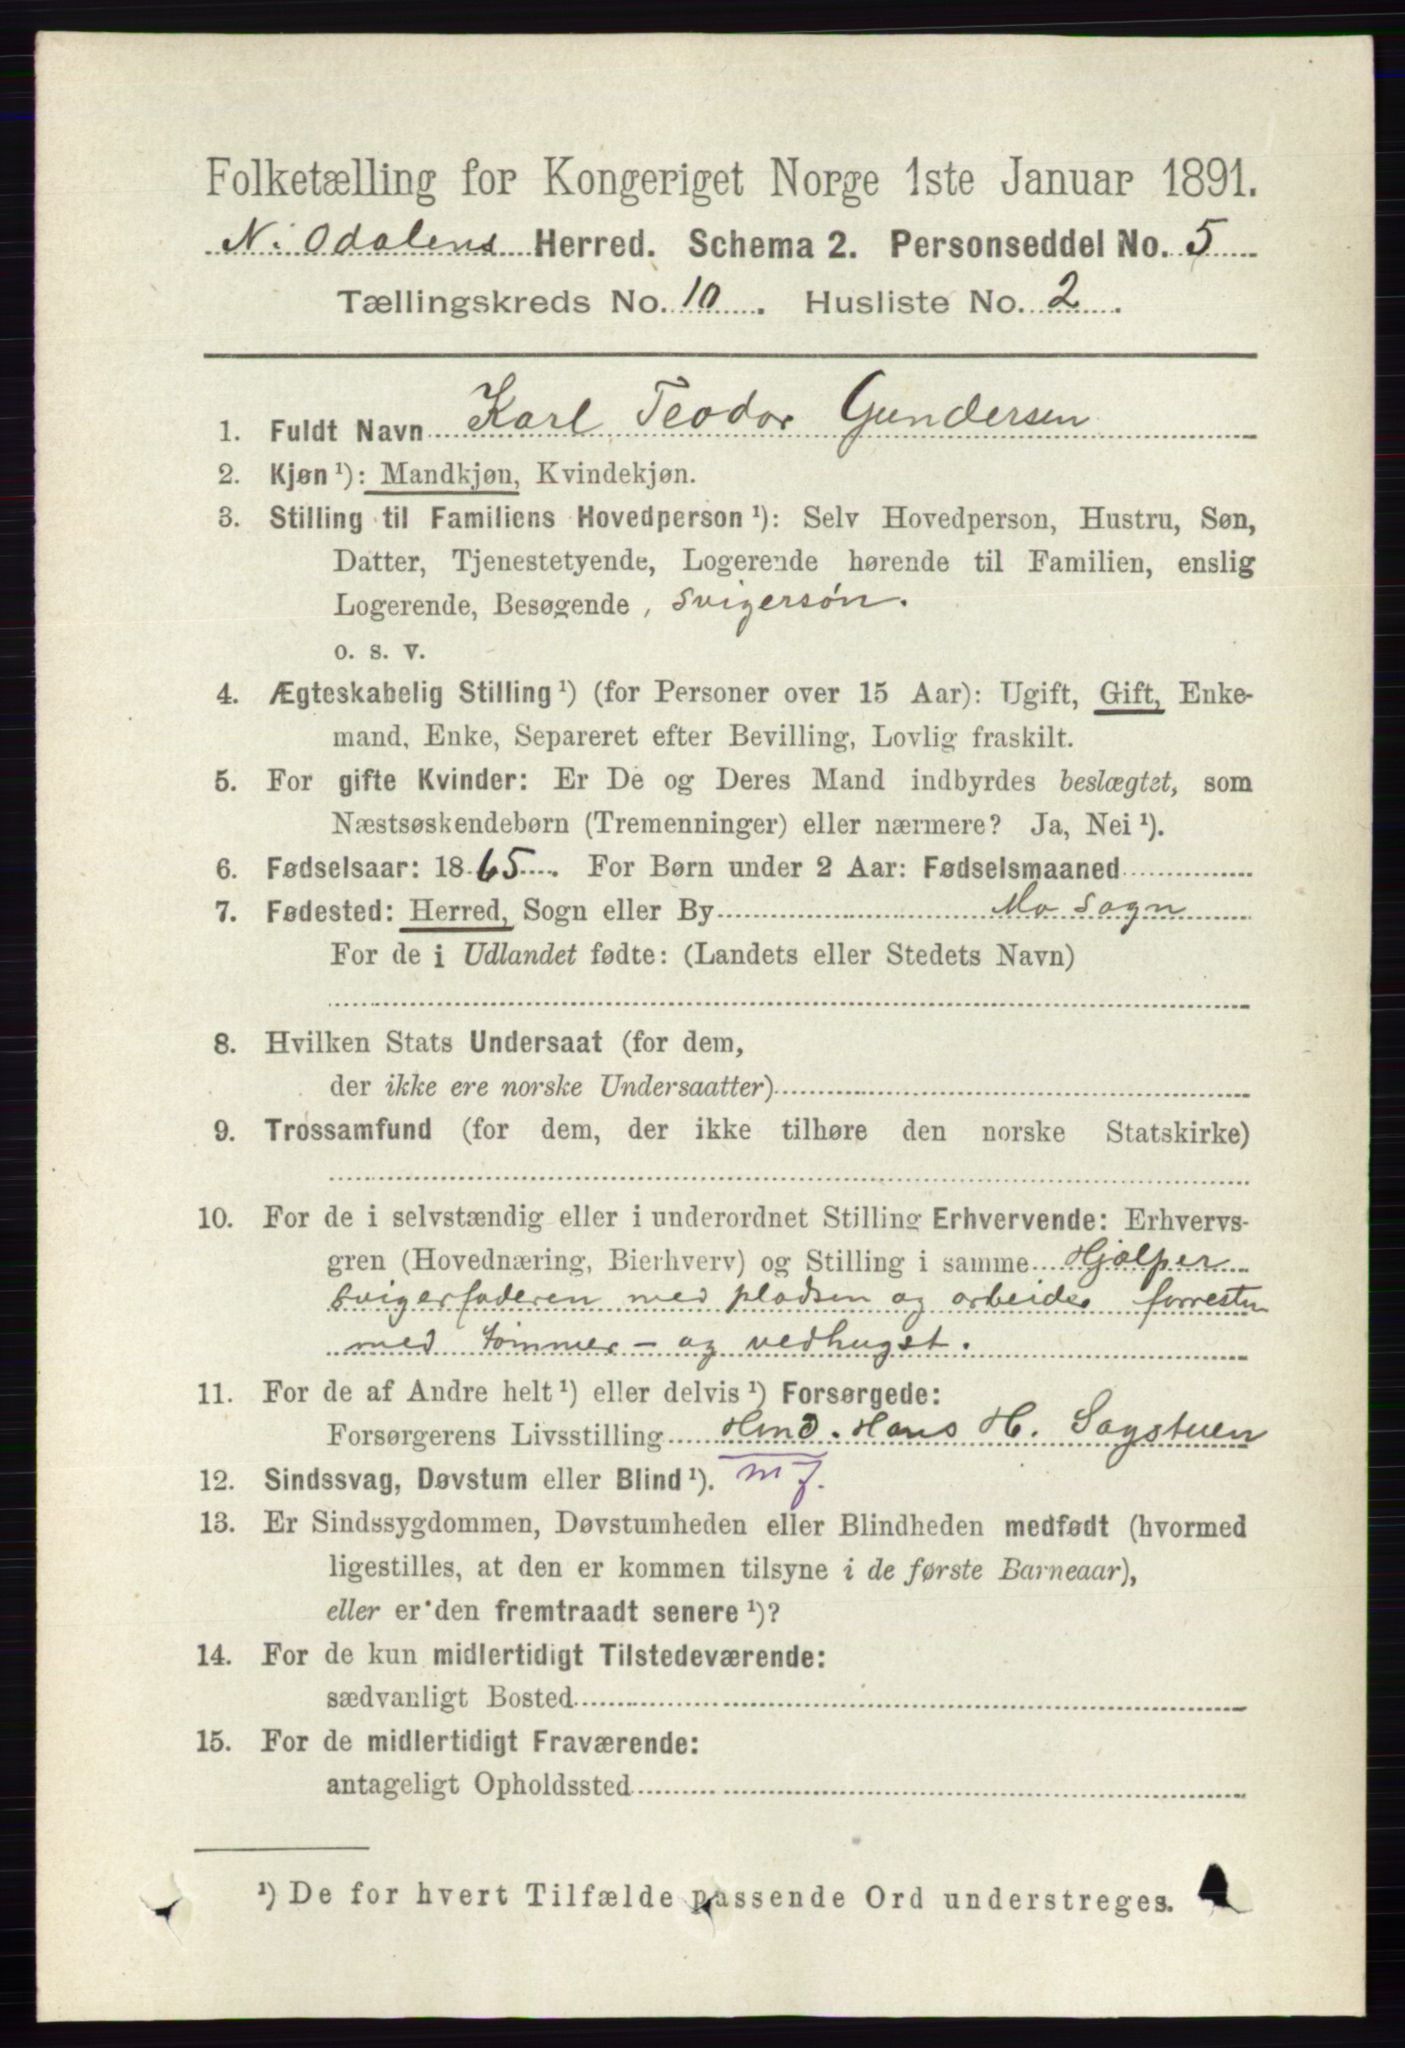 Folketælling for Kongeriget Norge 1ste Januar 1891.
N. Odalens Herred. Schema 2. Personseddel No. 5
Tællingskreds No. 10. Husliste No. 2.
1. Fuldt Navn Karl Teodor Gundersen
2. Kjøn ¹): Mandkjøn, Kvindekjøn.
3. Stilling til Familiens Hovedperson ¹): Selv Hovedperson, Hustru, Søn,
Datter, Tjenestetyende, Logerende hørende til Familien, enslig
Logerende, Besøgende, svigersøn.
o. s. v.
4. Ægteskabelig Stilling ¹) (for Personer over 15 Aar): Ugift, Gift, Enke-
mand, Enke, Separeret efter Bevilling, Lovlig fraskilt.
5. For gifte Kvinder: Er De og Deres Mand indbyrdes beslægtet, som
Næstsøskendebørn (Tremenninger) eller nærmere? Ja, Nei ¹).
6. Fødselsaar: 1865. For Børn under 2 Aar: Fødselsmaaned
7. Fødested: Herred, Sogn eller By Mo sogn
For de i Udlandet fødte: (Landets eller Stedets Navn)
8. Hvilken Stats Undersaat (for dem,
der ikke ere norske Undersaatter)
9. Trossamfund (for dem, der ikke tilhøre den norske Statskirke)
10. For de i selvstændig eller i underordnet Stilling Erhvervende: Erhvervs-
gren (Hovednæring, Bierhverv) og Stilling i samme Hjælper
svigerfaderen med pladsen og arbeider forresten
med tømmer- og vedhugst.
11. For de af Andre helt ¹) eller delvis ¹) Forsørgede:
Forsørgerens Livsstilling Hmd. Hans H. Sagstuen
12. Sindssvag, Døvstum eller Blind ¹). mf.
13. Er Sindssygdommen, Døvstumheden eller Blindheden medfødt (hvormed
ligestilles, at den er kommen tilsyne i de første Barneaar),
eller er den fremtraadt senere ¹)?
14. For de kun midlertidigt Tilstedeværende:
sædvanligt Bosted
15. For de midlertidigt Fraværende:
antageligt Opholdssted
¹) De for hvert Tilfælde passende Ord understreges.